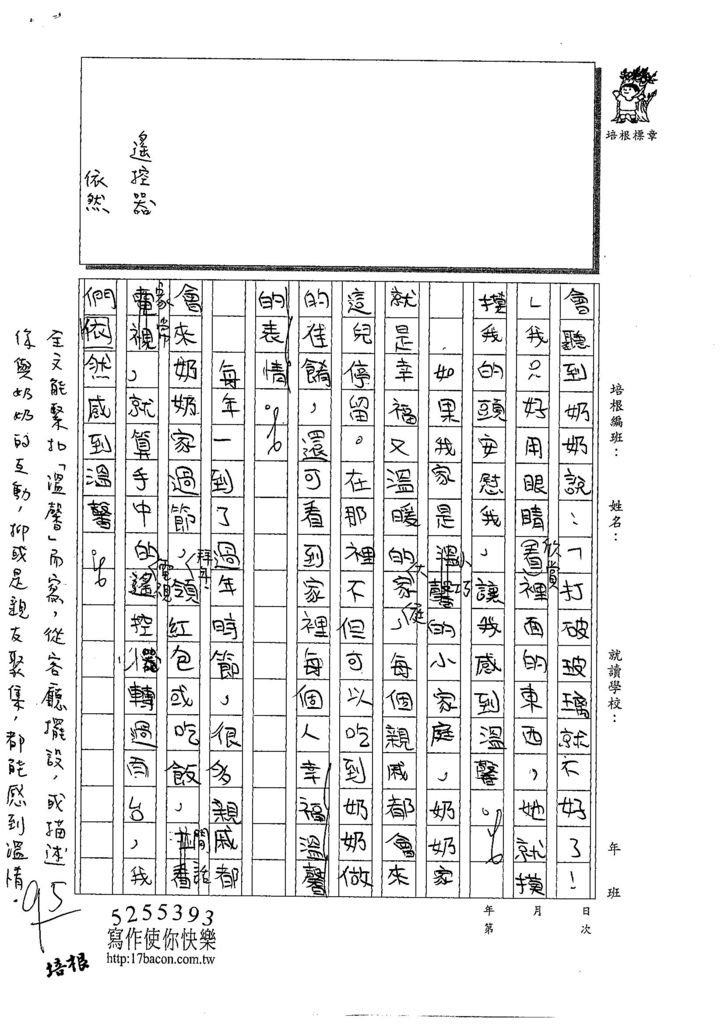 培根標章
遙控器
依然
培根編班：
姓名：
就讀學校：
年 班
年 月 日
第 次
會聽到奶奶說：「打破玻璃就不好了！
」我只好用眼睛看裡面的東西，她就摸
欣賞
摸我的頭安慰我，讓我感到溫馨。
如果我家是溫馨的小家庭，奶奶家
小巧
就是幸福又溫暖的家，每個親戚都會來
大
庭
這兒停留。在那裡不但可以吃到奶奶做
的佳餚，還可看到家裡每個人幸福溫馨
的表情。
每年一到了過年時節，很多親戚都
會來奶奶家過節，領紅包或吃飯，並看
拜年
閒話
家常
電視，就算手中的遙控器轉過百台，我
電視
們依然感到溫馨。
全文能緊扣「溫馨」而寫，從客廳擺設，或描述
你與奶奶的互動，抑或是親友聚集，都能感到溫情。
95
5255393
寫作使你快樂
http:17bacon.com.tw
培根